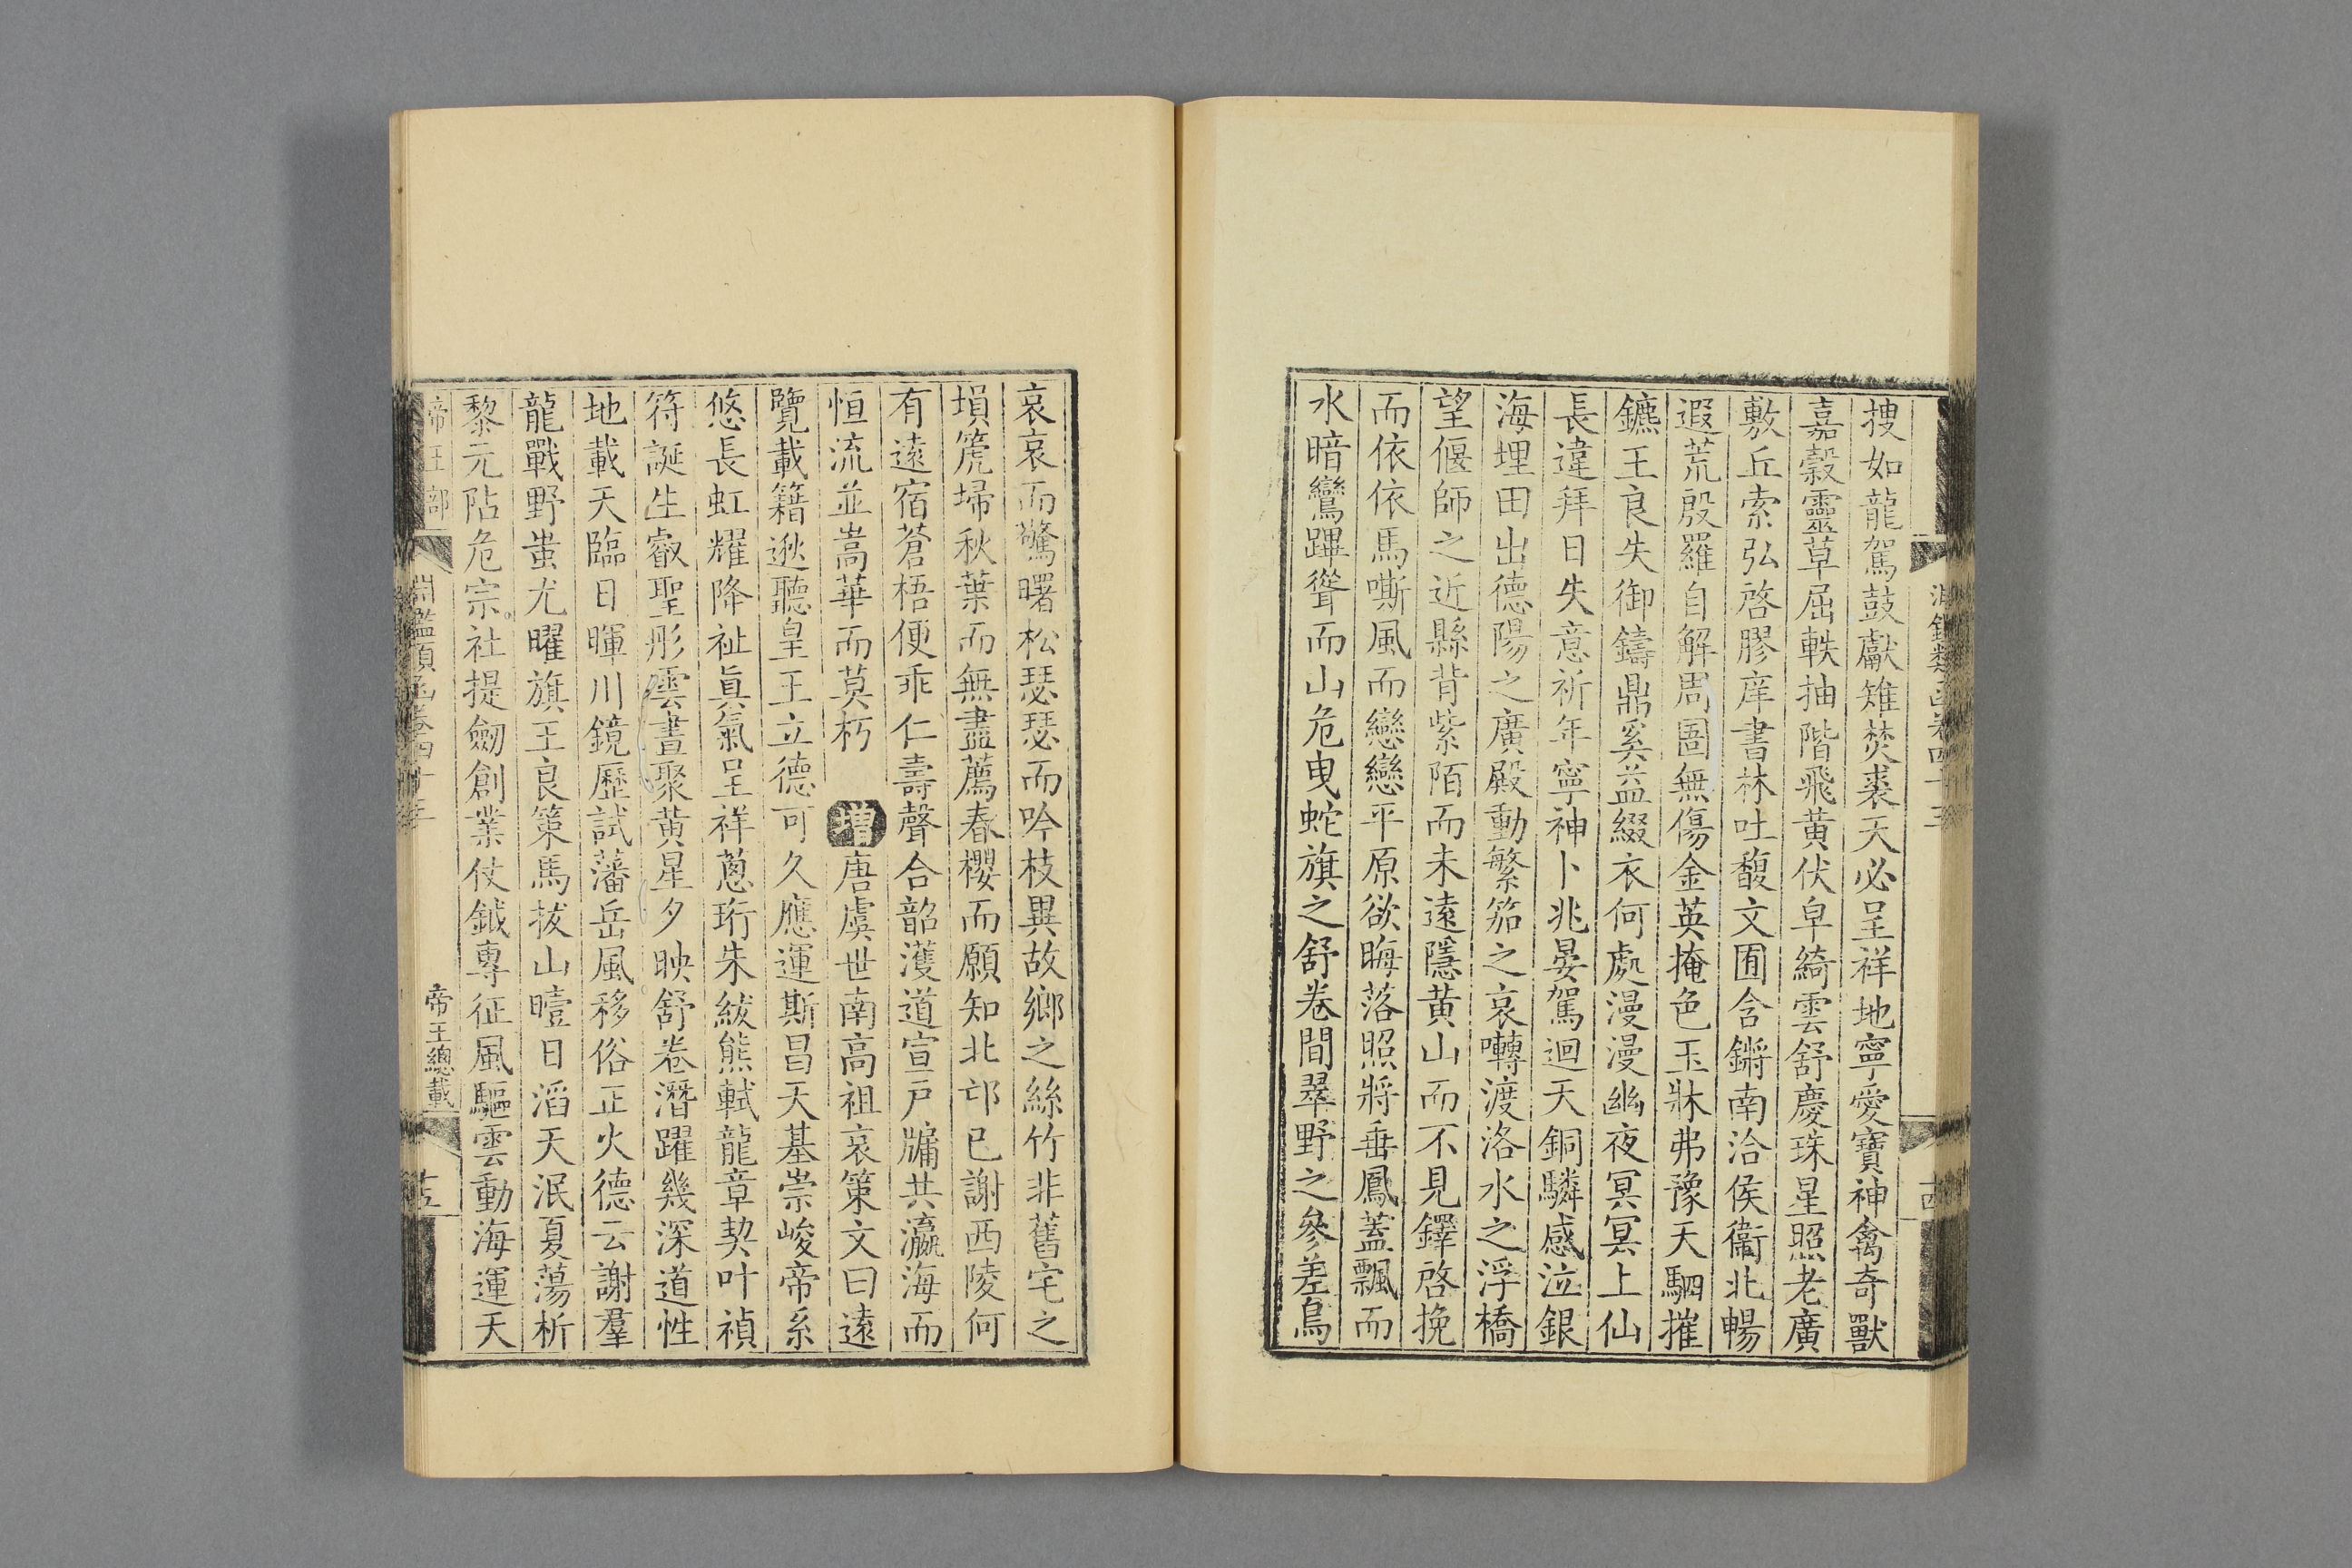 捜如龍駕鼓獻雉焚裘天必呈祥地寧愛寶神禽奇獸
嘉穀靈草屈軼抽階飛黃伏皁綺雲舒慶珠星照老廣
敷丘索弘啓膠庠書林吐馥文囿含鏘南洽侯衞北暢
遐荒殷羅自解周圄無傷金英掩色玉牀弗豫天駟摧
鑣王良失御鑄鼎奚益綴衣何處漫漫幽夜冥冥上仙
長違拜日失意祈年寧神卜兆晏駕迴天銅驎感泣銀
海埋田出德陽之廣殿動繁笳之哀囀渡洛水之浮橋
望偃師之近縣背紫陌而未遠隱黃山而不見鐸啓挽
而依依馬嘶風而戀戀平原欲晦落照將垂鳳蓋飄而
水暗鸞蹕聳而山危曳蛇旗之舒卷間翠野之參差烏
哀哀而驚曙松瑟瑟而吟枝異故鄉之絲竹非舊宅之
塤箎埽秋葉而無盡薦春櫻而願知北邙已謝西陵何
有遠宿蒼梧便乖仁壽聲合韶濩道宣戶牖共瀛海而
恒流並嵩華而莫朽 增唐虞世南高祖哀策文曰遠
覽載籍逖聽皇王立德可久應運斯昌天基崇峻帝系
悠長虹耀降祉眞氣呈祥蔥珩朱紱熊軾龍章契叶禎
符誕生叡聖彤雲晝聚黃星夕映舒卷潛躍幾深道性
地載天臨日暉川鏡歷試藩岳風移俗正火德云謝羣
龍戰野蚩尤曜旗王良策馬拔山曀日滔天泯夏蕩析
黎元阽危宗社提劒創業仗鉞專征風驅雲動海運天
帝王部 淵鑑類函卷四十三 帝王總載 十五